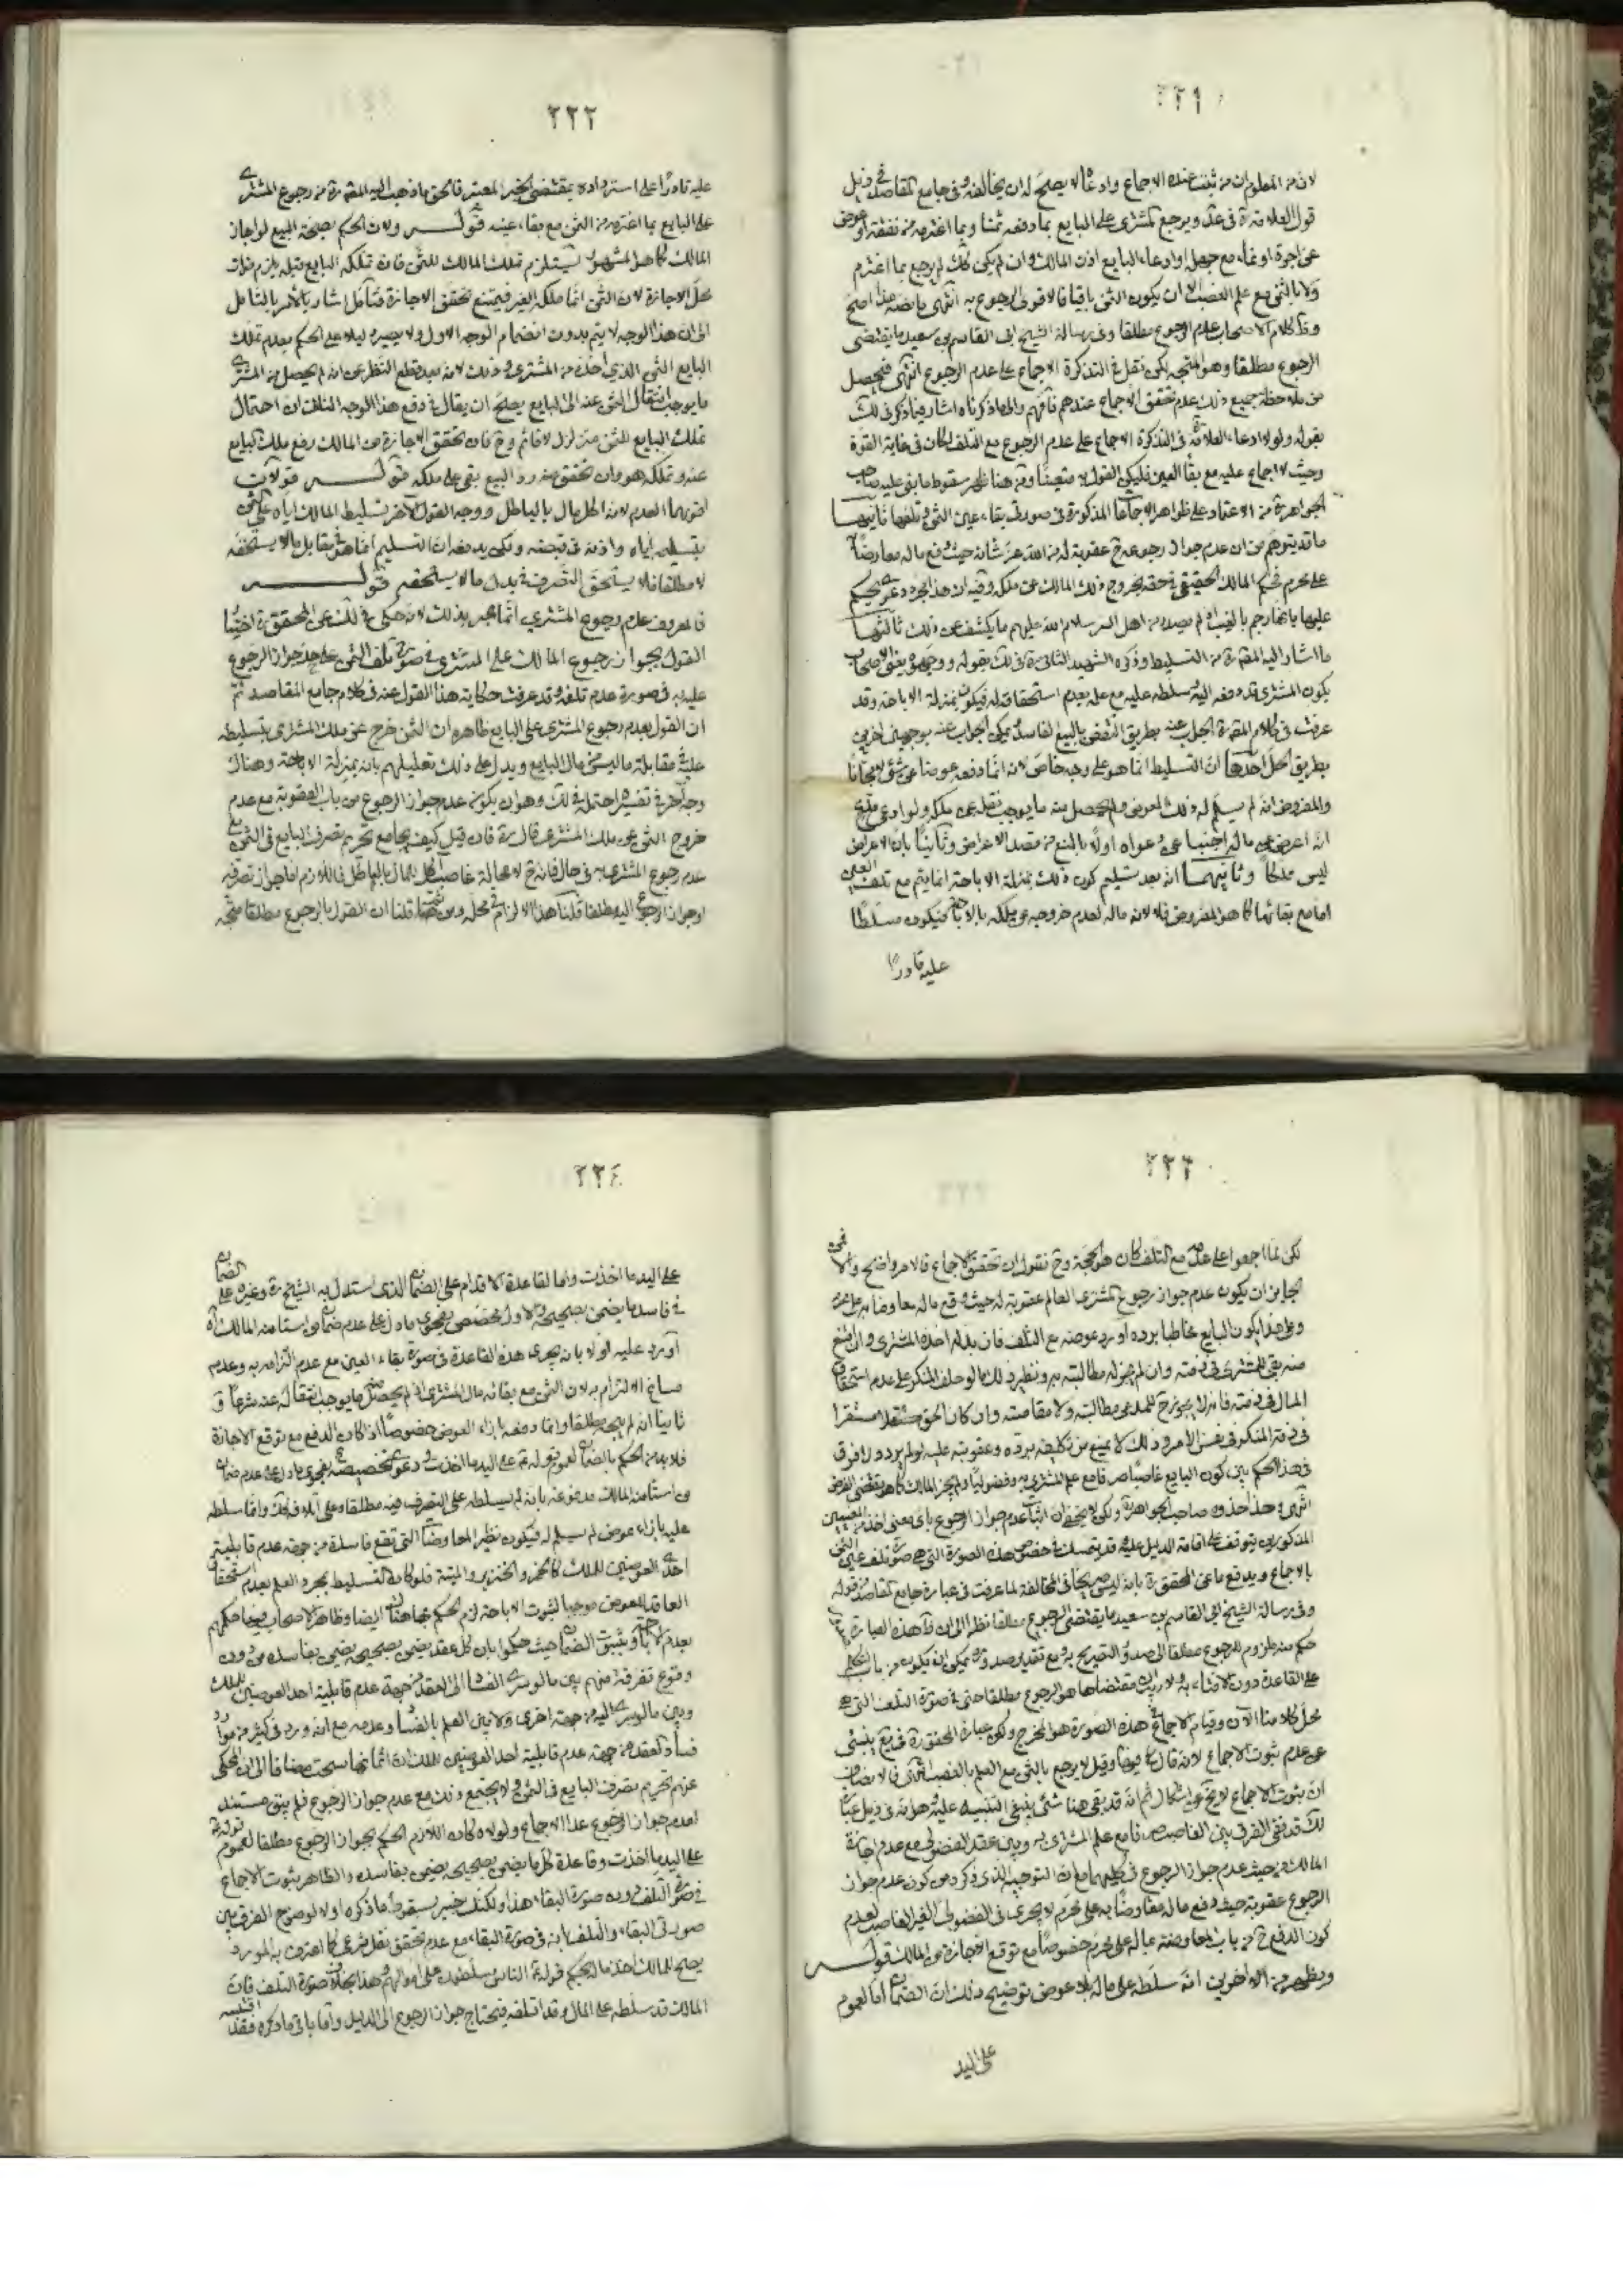 ٢٢١
لان من المعلوم ان من ثبت عنده الاجماع وادعاه لا يصلح له ان يخالفه وفي جامع المقاصد في ذيل
قول العلامة ويرجع المشتري على البايع بما دفعه ثمنا وبما اغترمه من نفقة او عوض
عن اجرة او نماء مع جهله او ادعاء البايع اذن المالك وان لم يكن كذلك لم يرجع بما اغترم
ولا بالثمن مع علم الغصب الا ان يكون الثمن باقيا فالاقوى الرجوع به انتهى ما نصه هذا اصح
وظ كلام الاصحاب عدم الرجوع مطلقا وفي رسالة الشيخ ابي القاسم بن سعيد ما يقتضي
الرجوع مطلقا وهو المتجه لكن نقل في التذكرة الاجماع على عدم الرجوع انتهى فيحصل
من ملاحظة جميع ذلك عدم تحقق الاجماع عندهم فافهم والى ما ذكرناه اشار فيما ذكر في لك
بقوله ولولا ادعاء العلامة في التذكرة الاجماع على عدم الرجوع مع التلف لكان في غاية القوة
وحيث لا اجماع عليه مع بقاء العين فليكن القول به متعينا ومن هنا ظهر سقوط ما بنى عليه صاحب
الجواهر من الاعتماد على ظواهر الاجماعات المذكورة في صورتي بقاء عين الثمن وتلفها ثانيها
ما قد يتوهم من ان عدم جواز رجوعه ح عقوبة له من الله عز شانه حيث دفع ماله معاوضا
على محرم فحكم المالك الحقيقي في حقه بخروج ذلك المالك عن ملكه وفيه ان هذا مجرد دعوى
ما اشار اليه المصنف من التسليط وذكره الشهيد الثاني في لك بقوله ووجهوه يعني الاصحاب
يكون المشتري قد دفعه اليه وسلطه عليه مع علمه بعدم استحقاقه له فيكون بمنزلة الاباحة وقد
عرفت في كلام المصنف الجواب عنه بطريق النقض بالبيع الفاسد ويمكن الجواب عنه بوجهين اخرين
بطريق الحل احدهما ان التسليط انما هو على وجه خاص لانه انما دفعه عوضا عن شيء لا مجانا
والمفروض انه لم يسلم له ذلك العوض ولم يحصل منه ما يوجب نقله عن ملكه ولو ادعى مدع
انه اعرض عن ماله اجنبنا عن دعواه اولا بالمنع من قصد الاعراض وثانيا بان الاعراض
ليس مملكا وثانيهما انه بعد تسليم كون ذلك بمنزلة الاباحة انما يتم مع تلف العين
اما مع بقائها كما هو المفروض فلا لانه ماله لعدم خروجه عن ملكه بالاباحة فيكون مسلطا
عليه قادرا
٢٢٢
عليه قادرا على استرداده بمقتضى الخبر المعتبر فالحق ما ذهب اليه المصنف من رجوع المشتري
على البايع بما اغترمه من الثمن مع بقاء عينه قوله ولان الحكم بصحة البيع لو اجاز
المالك كما هو المشهور يستلزم تملك المالك للثمن فان تملكه البايع قبله يلزم فوات
محل الاجازة لان الثمن انما ملكه الغير فيمتنع تحقق الاجازة فتامل اشار بالامر بالتامل
الى ان هذا الوجه لا يتم بدون انضمام الوجه الاول ولا يصير دليلا على الحكم بعدم تملك
البايع الثمن الذي اخذه من المشتري وذلك لانه بعد قطع النظر عن انه لم يحصل من المشتري
ما يوجب انتقال الثمن عنه الى البايع يصلح ان يقال في دفع هذا الوجه الثالث ان احتمال
تملك البايع للثمن متزلزل لا قائم وح فان تحقق الاجازة من المالك رفع ملك البايع
عنه وتملكه هو وان تحقق منه رد البيع بقي على ملكه قوله قولان
اقويهما العدم لانه اكل مال بالباطل ووجه القول الاخر تسليط المالك اياه على
بتسليمه اياه واذنه في قبضه ولكن يدفعه ان التسليم انما هو في مقابل مال لا يستحقه
لا مطلقا فلا يستحق التصرف في بدل ما لا يستحقه قوله
فالمعروف عدم رجوع المشتري انما عبر بذلك لانه حكى في لك عن المحقق اختيار
القول بجواز رجوع المالك على المشتري في صورة تلف الثمن على حد جواز الرجوع
عليه به في صورة عدم تلفه وقد عرفت حكاية هذا القول عنه في كلام جامع المقاصد ثم
ان القول بعدم رجوع المشتري على البايع ظاهره ان الثمن خرج عن ملك المشتري بتسليطه
عليه في مقابلة ما ليس من مال البايع ويدل على ذلك تعليلهم بانه بمنزلة الاباحة وهناك
وجه آخر في تفسيره احتمله في لك وهو ان يكون عدم جواز الرجوع من باب العقوبة مع عدم
خروج الثمن عن ملك المشتري قال فان قيل كيف يجامع تحريم تصرف البايع في الثمن مع
عدم رجوع المشتري به في حال فانه ح لا محالة غاصب اكل المال بالباطل فاللازم اما جواز تصرفه
او جواز الرجوع اليه مطلقا قلنا هذا الالزام في محله ومن ثم قلنا ان القول بالرجوع مطلقا متجه
٢٢٣
لكن لما اجمعوا على عدمه مع التلف كان هو الحجة وح نقول ان تحقق الاجماع فالامر واضح والا فمن
الجايز ان يكون عدم جواز رجوع المشتري العالم عقوبة له حيث دفع ماله معاوضا به على محرم
وعلى هذا يكون البايع مخاطبا برده او رد عوضه مع التلف فان بذله اخذه المشتري وان امتنع
منه بقي للمشتري في ذمته وان لم يجز له مطالبته به ونظير ذلك ما لو حلف المنكر على عدم استحقاق
المال في ذمته فانه لا يجوز ح للمدعي مطالبته ولا مقاصته وان كان الحق مستقرا
في ذمة المنكر في نفس الامر وذلك لا يمنع من تكليفه برده وعقوبته عليه لو لم يرده ولا فرق
في هذا الحكم بين كون البايع غاصبا صرفا مع علم المشتري به وفضوليا ولم يجز المالك كما هو مقتضى الفرض
انتهى وحذا حذوه صاحب الجواهر ولكن لا يخفى ان اثبات عدم جواز الرجوع باي معنى اخذ من المعنيين
المذكورين يتوقف على اقامة الدليل عليه وقد يتمسك في خصوص هذه الصورة التي هي صورة تلف عين الثمن
بالاجماع ويدفع ما عن المحقق بانه ليس صريحا في المخالفة لما عرفت في عبارة جامع المقاصد من قوله
وفي رسالة الشيخ ابي القاسم بن سعيد ما يقتضي الرجوع مطلقا نظرا الى ان هذه العبارة
على القاعدة دون الافتاء به ولا ريب ان مقتضاها هو الرجوع مطلقا حتى في صورة التلف التي هي
محل كلامنا الآن وقيام الاجماع في هذه الصورة هو المخرج ولكن عبارة المحقق في يع ينبئ
عن عدم ثبوت الاجماع لانه قال فيها وقيل لا يرجع بالثمن مع العلم بالغصب انتهى فالانصاف
ان ثبوت الاجماع لا يخ عن اشكال ثم انه قد بقي هنا شيء ينبغي التنبيه عليه وهو انه في ذيل عبارة
لك قد نفى الفرق بين الغاصب صرفا مع علم المشتري به وبين عقد الفضولي مع عدم اجازة
المالك من حيث عدم جواز الرجوع في كليهما مع ان التوجيه الذي ذكره من كون عدم جواز
الرجوع عقوبة حيث دفع ماله معاوضا به على محرم لا يجري في الفضولي الغير الغاصب لعدم
كون الدفع ح من باب المعاوضة بماله على محرم خصوصا مع توقع الاجازة من المالك قوله
ويظهر من الاخيرين انه سلطه على ماله بلا عوض توضيح ذلك ان الضمان اما لعموم
على اليد
٢٢٤
على اليد ما اخذت واما لقاعدة الاقدام على الضمان الذي استدل به الشيخ وغيره على الضمان
في فاسد ما يضمن بصحيحه والاول مخصص بفحوى ما دل على عدم ضمان من استامنه المالك
اورد عليه اولا بانه يجري هذه القاعدة في صورة بقاء العين مع عدم التزامه به وعدم
مساغ الالتزام به لان الثمن مع بقائه مال المشتري اذ لم يحصل منه ما يوجب انتقاله عنه شرعا و
ثانيا انه لم يبحه مطلقا وانما دفعه بازاء العوض خصوصا اذا كان الدفع مع توقع الاجازة
فلا بد من الحكم بالضمان لعموم قوله على اليد ما اخذت ودعوى تخصيصه بفحوى ما دل على عدم ضمان
من استامنه المالك مدفوعة بانه لم يسلطه على التصرف فيه مطلقا وعلى اتلافه وانما سلطه
عليه بازاء عوض لم يسلم له فيكون نظير المعاوضات التي تقع فاسدة من جهة عدم قابلية
احد العوضين للملك كالخمر والخنزير والميتة فلو كان التسليط بمجرد العلم بعدم استحقاق
العاقد للعوض موجبا لثبوت الاباحة لزم الحكم بها هناك ايضا وظاهر الاصحاب حكمهم
بعدم الاباحة وبثبوت الضمان حيث حكموا بان كل عقد يضمن بصحيحه يضمن بفاسده من دون
وقوع تفرقة منهم بين ما لو سرى الفساد الى العقد من جهة عدم قابلية احد العوضين للملك
وبين ما لو سرى اليه من جهة اخرى ولا بين العلم بالفساد وعدمه مع انه ورد في كثير من موارد
فساد العقد من جهة عدم قابلية احد العوضين للملك ان اثمانها سحت مضافا الى ان المحكي
عنهم تحريم تصرف البايع في الثمن ولا يجتمع ذلك مع عدم جواز الرجوع فلم يبق مستند
لعدم جواز الرجوع عدا الاجماع ولولاه كان اللازم الحكم بجواز الرجوع مطلقا لعموم قوله
على اليد ما اخذت وقاعدة كل ما يضمن بصحيحه يضمن بفاسده والظاهر ثبوت الاجماع
في صورة التلف دون صورة البقاء هذا ولكنك خبير بسقوط ما ذكره اولا لوضوح الفرق بين
صورتي البقاء والتلف لانه في صورة البقاء مع عدم تحقق نقل شرعي كما اعترف به المورد
يصلح للمالك اخذ ماله بحكم قوله الناس مسلطون على اموالهم وهذا بخلاف صورة التلف فان
المالك قد سلطه على المال وقد اتلفه فيحتاج جواز الرجوع الى الدليل واما باقي ما ذكره فقد